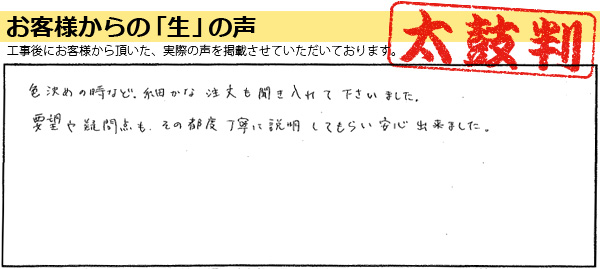 お客様からの「生」の声
太鼓判
工事後にお客様から頂いた、実際の声を掲載させていただいております。
色決めの時など、細かな注文も聞き入れて下さいました。
要望や疑問点も、その都度丁寧に説明してもらい安心出来ました。